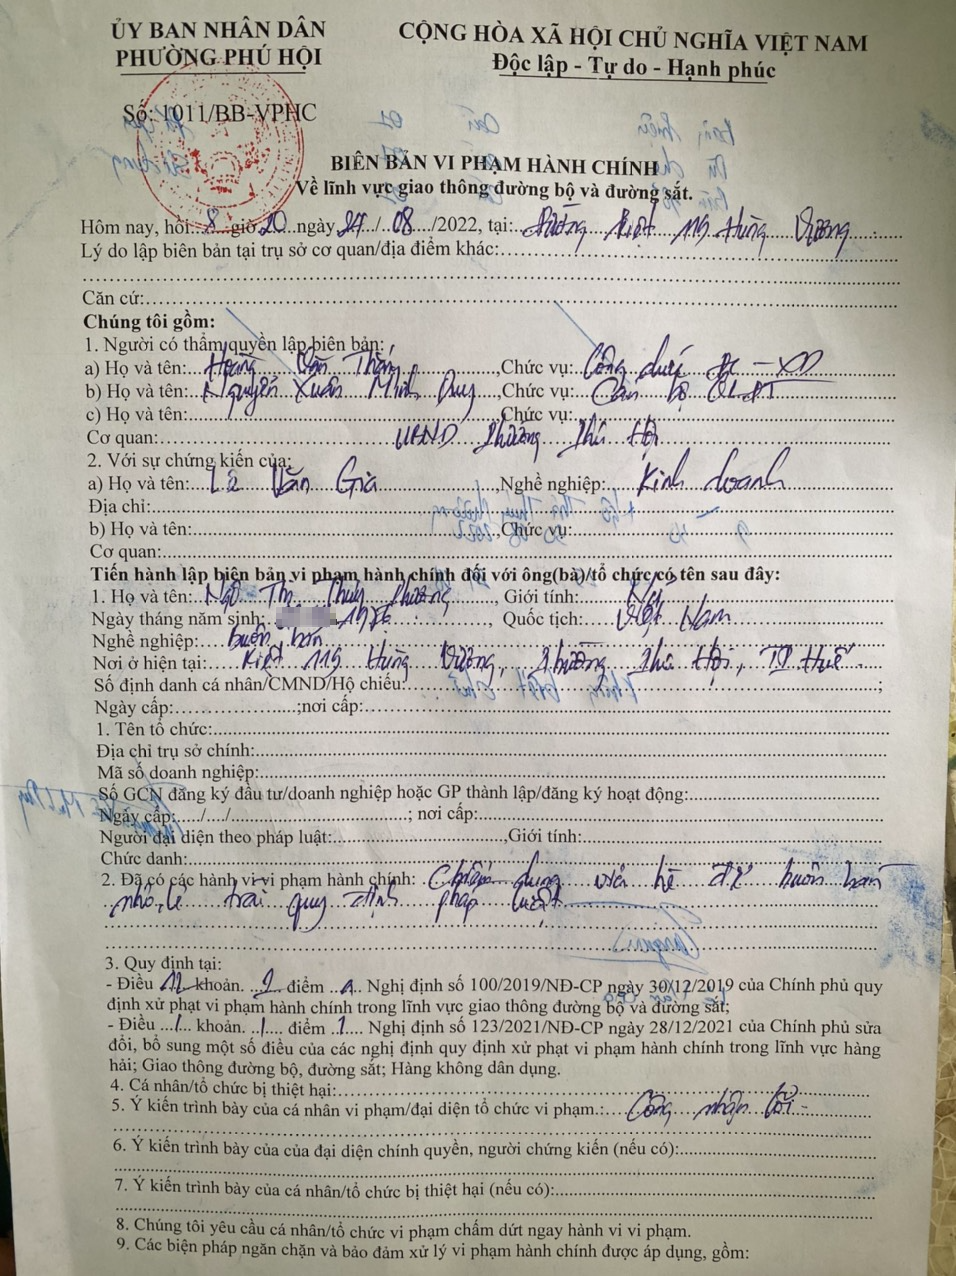 ỦY BAN NHÂN DÂN
PHƯỜNG PHÚ HỘI
CỘNG HÒA XÃ HỘI CHỦ NGHĨA VIỆT NAM
Độc lập - Tự do - Hạnh phúc
Số: 1011/BB-VPHC
BIÊN BẢN VI PHẠM HÀNH CHÍNH
Về lĩnh vực giao thông đường bộ và đường sắt.
Hôm nay, hồi 8 giờ 20 ngày 27/08/2022, tại: Đường Kiệt 119 Hùng Vương
Lý do lập biên bản tại trụ sở cơ quan/địa điểm khác:
Căn cứ:
Chúng tôi gồm:
1. Người có thẩm quyền lập biên bản:
a) Họ và tên: Hoàng Văn Thắng, Chức vụ: Công chức ĐC - XD
b) Họ và tên: Nguyễn Xuân Minh Duy, Chức vụ: Cán bộ QLĐT
c) Họ và tên: Chức vụ:
Cơ quan: UBND Phường Phú Hội
2. Với sự chứng kiến của:
a) Họ và tên: Lê Văn Già, Nghề nghiệp: Kinh doanh
Địa chỉ:
b) Họ và tên:, Chức vụ:
Cơ quan:
Tiến hành lập biên bản vi phạm hành chính đối với ông(bà)/tổ chức có tên sau đây:
1. Họ và tên: Ngô Thị Thúy Phương, Giới tính: Nữ
Ngày tháng năm sinh:, Quốc tịch: Việt Nam
Nghề nghiệp: buôn bán
Nơi ở hiện tại: Kiệt 119 Hùng Vương, Phường Phú Hội, TP Huế
Số định danh cá nhân/CMND/Hộ chiếu:;
Ngày cấp:;nơi cấp:
1. Tên tổ chức:
Địa chỉ trụ sở chính:
Mã số doanh nghiệp:
Số GCN đăng ký đầu tư/doanh nghiệp hoặc GP thành lập/đăng ký hoạt động:
Ngày cấp:..../..../; nơi cấp:
Người đại diện theo pháp luật:,Giới tính:
Chức danh:
2. Đã có các hành vi vi phạm hành chính: Chiếm dụng vỉa hè để buôn bán
nhỏ, lẻ trái quy định pháp luật
3. Quy định tại:
- Điều 12 khoản 1 điểm a Nghị định số 100/2019/NĐ-CP ngày 30/12/2019 của Chính phủ quy
định xử phạt vi phạm hành chính trong lĩnh vực giao thông đường bộ và đường sắt;
- Điều / khoản / điểm / Nghị định số 123/2021/NĐ-CP ngày 28/12/2021 của Chính phủ sửa
đổi, bổ sung một số điều của các nghị định quy định xử phạt vi phạm hành chính trong lĩnh vực hàng
hải; Giao thông đường bộ, đường sắt; Hàng không dân dụng.
4. Cá nhân/tổ chức bị thiệt hại:
5. Ý kiến trình bày của cá nhân vi phạm/đại diện tổ chức vi phạm.: Công nhận lỗi
6. Ý kiến trình bày của của đại diện chính quyền, người chứng kiến (nếu có):
7. Ý kiến trình bày của cá nhân/tổ chức bị thiệt hại (nếu có):
8. Chúng tôi yêu cầu cá nhân/tổ chức vi phạm chấm dứt ngay hành vi vi phạm.
9. Các biện pháp ngăn chặn và bảo đảm xử lý vi phạm hành chính được áp dụng, gồm: